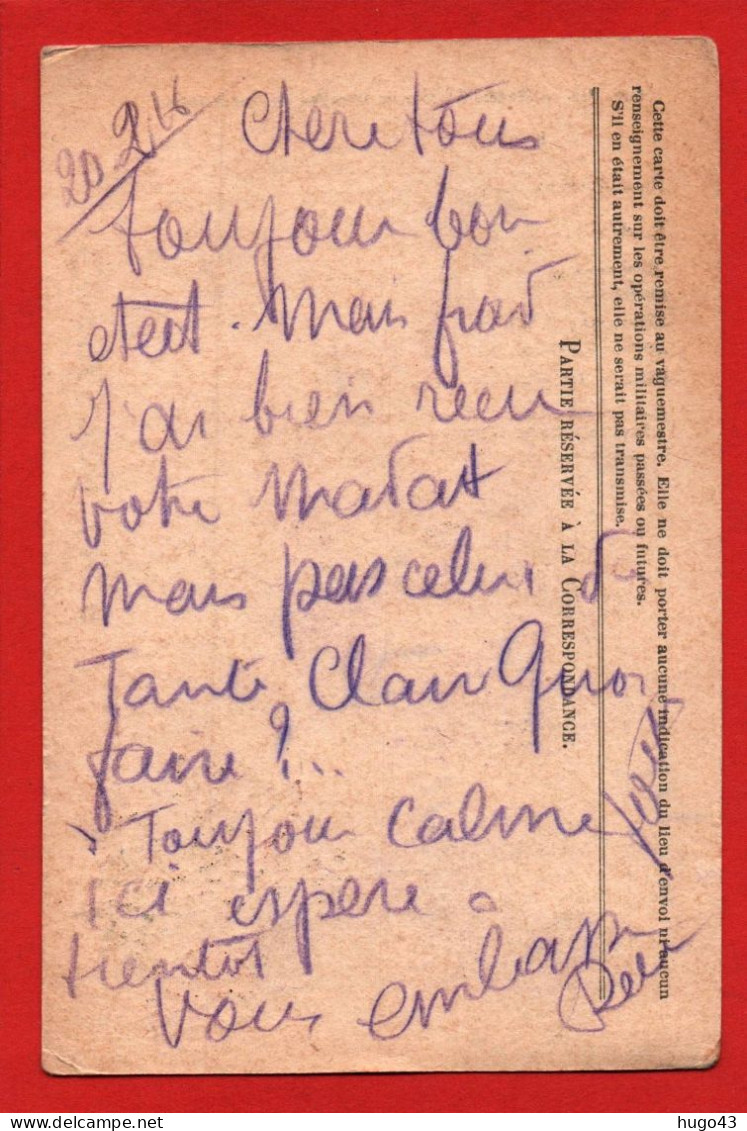 20 2 16
Chere tous
Toujour bon
etat. Mais froid
J'ai bien recu
votre mandat
mais pas celui d
Tante Clair Quoi
faire ?...
Toujour calme
ici espere a
bientot
Vous embrass
PARTIE RÉSERVÉE À LA CORRESPONDANCE.
Cette carte doit être remise au vaguemestre. Elle ne doit porter aucune indication du lieu d'envoi ni aucun
renseignement sur les opérations militaires passées ou futures.
S'il en était autrement, elle ne serait pas transmise.
hugo43